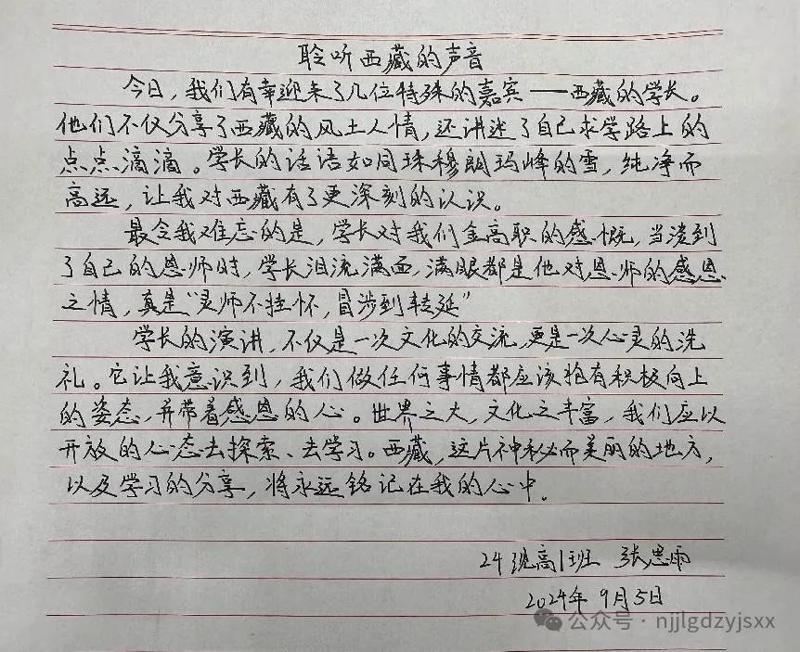 聆听西藏的声音
今日，我们有幸迎来了几位特殊的嘉宾——西藏的学长。
他们不仅分享了西藏的风土人情，还讲述了自己求学路上的
点点滴滴。学长的话语如同珠穆朗玛峰的雪，纯净而
高远，让我对西藏有了更深刻的认识。
最令我难忘的是，学长对我们金高职的感慨，当谈到
了自己的恩师时，学长泪流满面，满眼都是他对恩师的感恩
之情，真是“灵师不挂怀，冒涉到转延”
学长的演讲，不仅是一次文化的交流，更是一次心灵的洗
礼。它让我意识到，我们做任何事情都应该抱有积极向上
的姿态，并带着感恩的心。世界之大，文化之丰富，我们应以
开放的心态去探索、去学习。西藏，这片神秘而美丽的地方，
以及学习的分享，将永远铭记在我的心中。
24 高1班 张思雨
2024年 9月5日
公众号·njjlgdzyjsxx